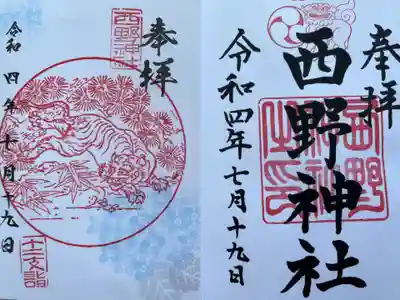 奉拝
西野神社
令和四年七月十九日
十二支詣
奉拝
西野神社
令和四年七月十九日